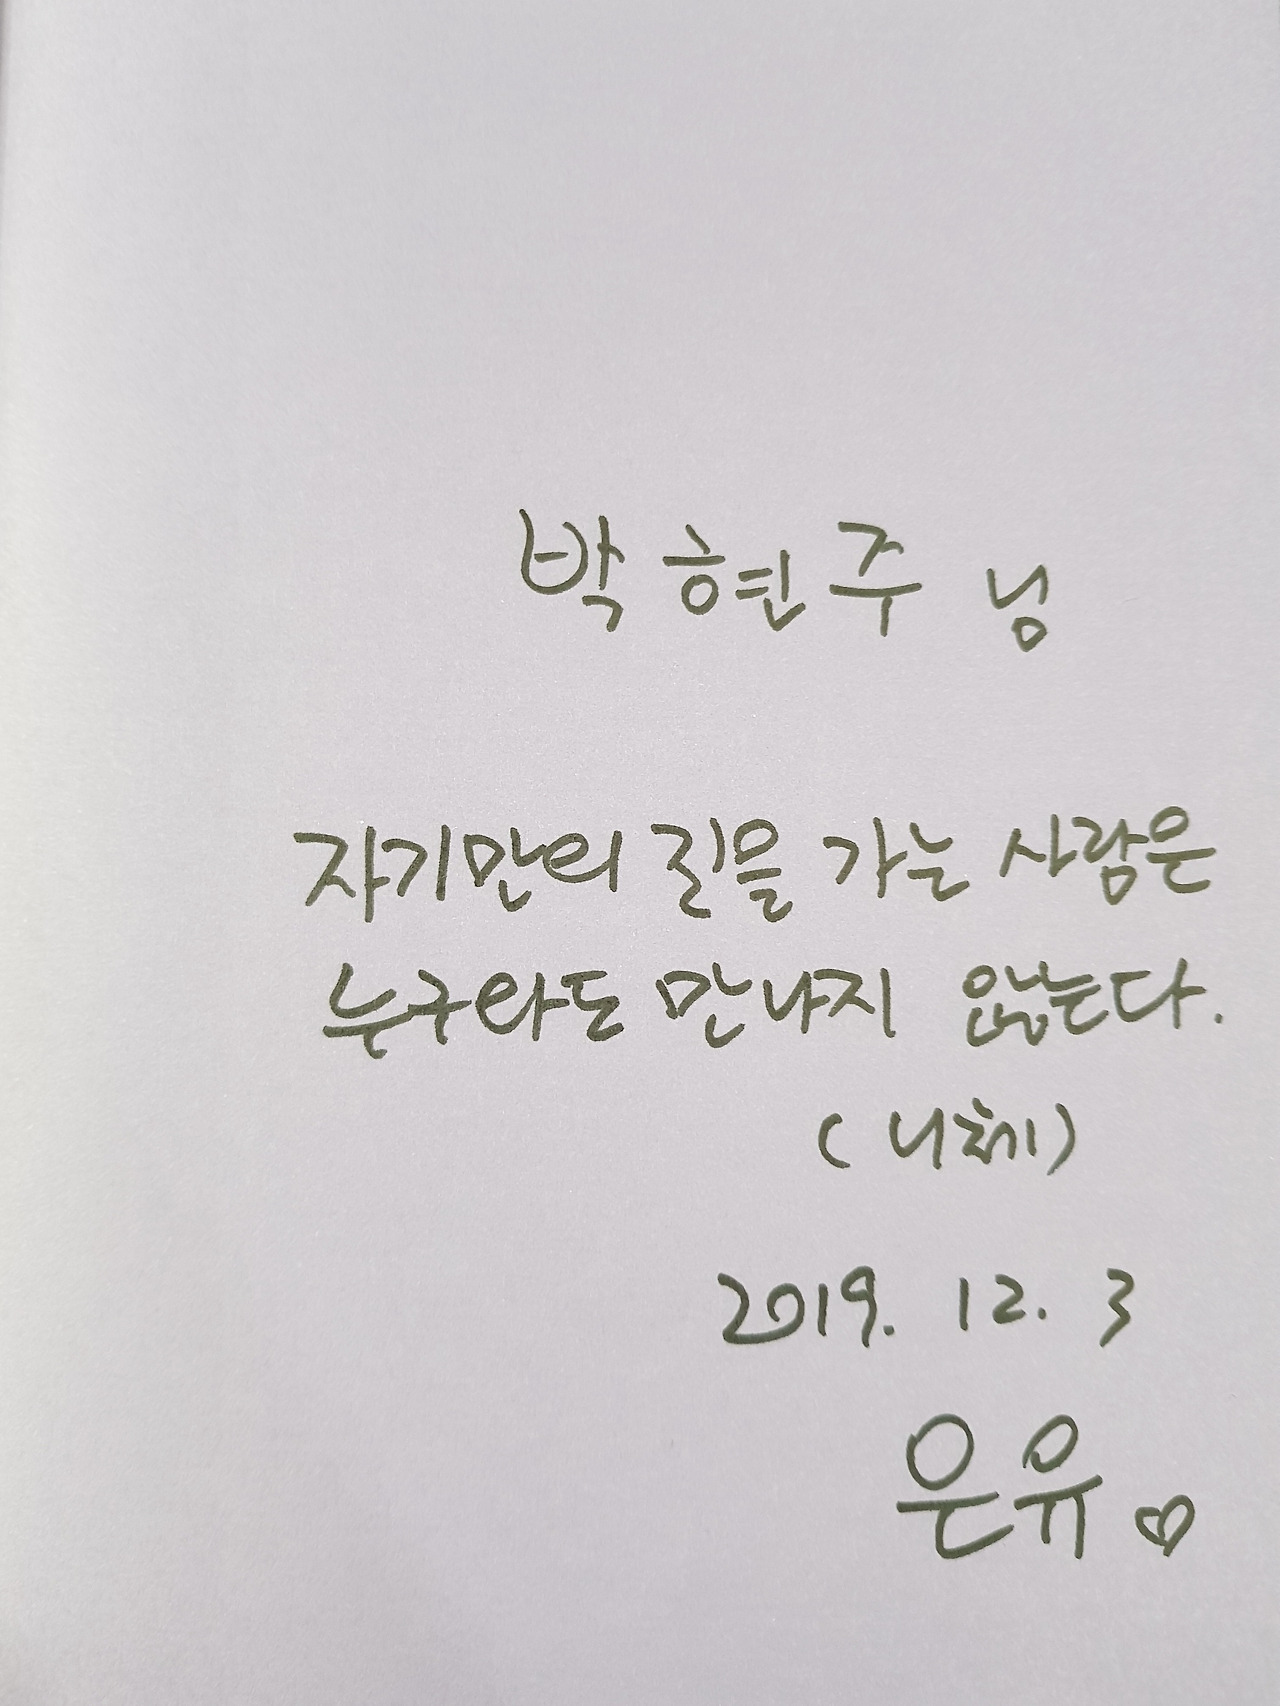 박현주 님
자기만의 길을 가는 사람은
누구와도 만나지 않는다.
(니체)
2019. 12. 3
은유♡